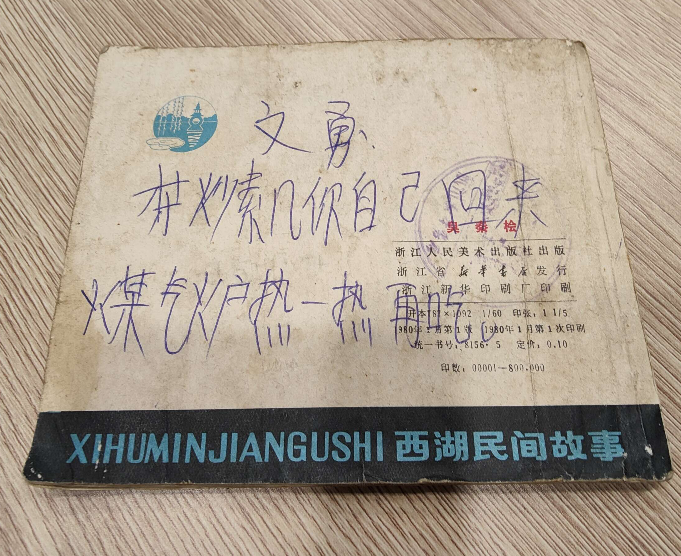 文勇
炒素几你自己回来
秦桧
浙江人民美术出版社出版
浙江省新华书店发行
浙江新华印刷厂印刷
煤气炉热一热再吃。
开本787×1092 1/60 印张:1 1/5
1980年 月第1版 1980年1月第1次印刷
统一书号:8156·5 定价:0.10
印数:00001—800.000
XIHUMINJIANGUSHI 西湖民间故事